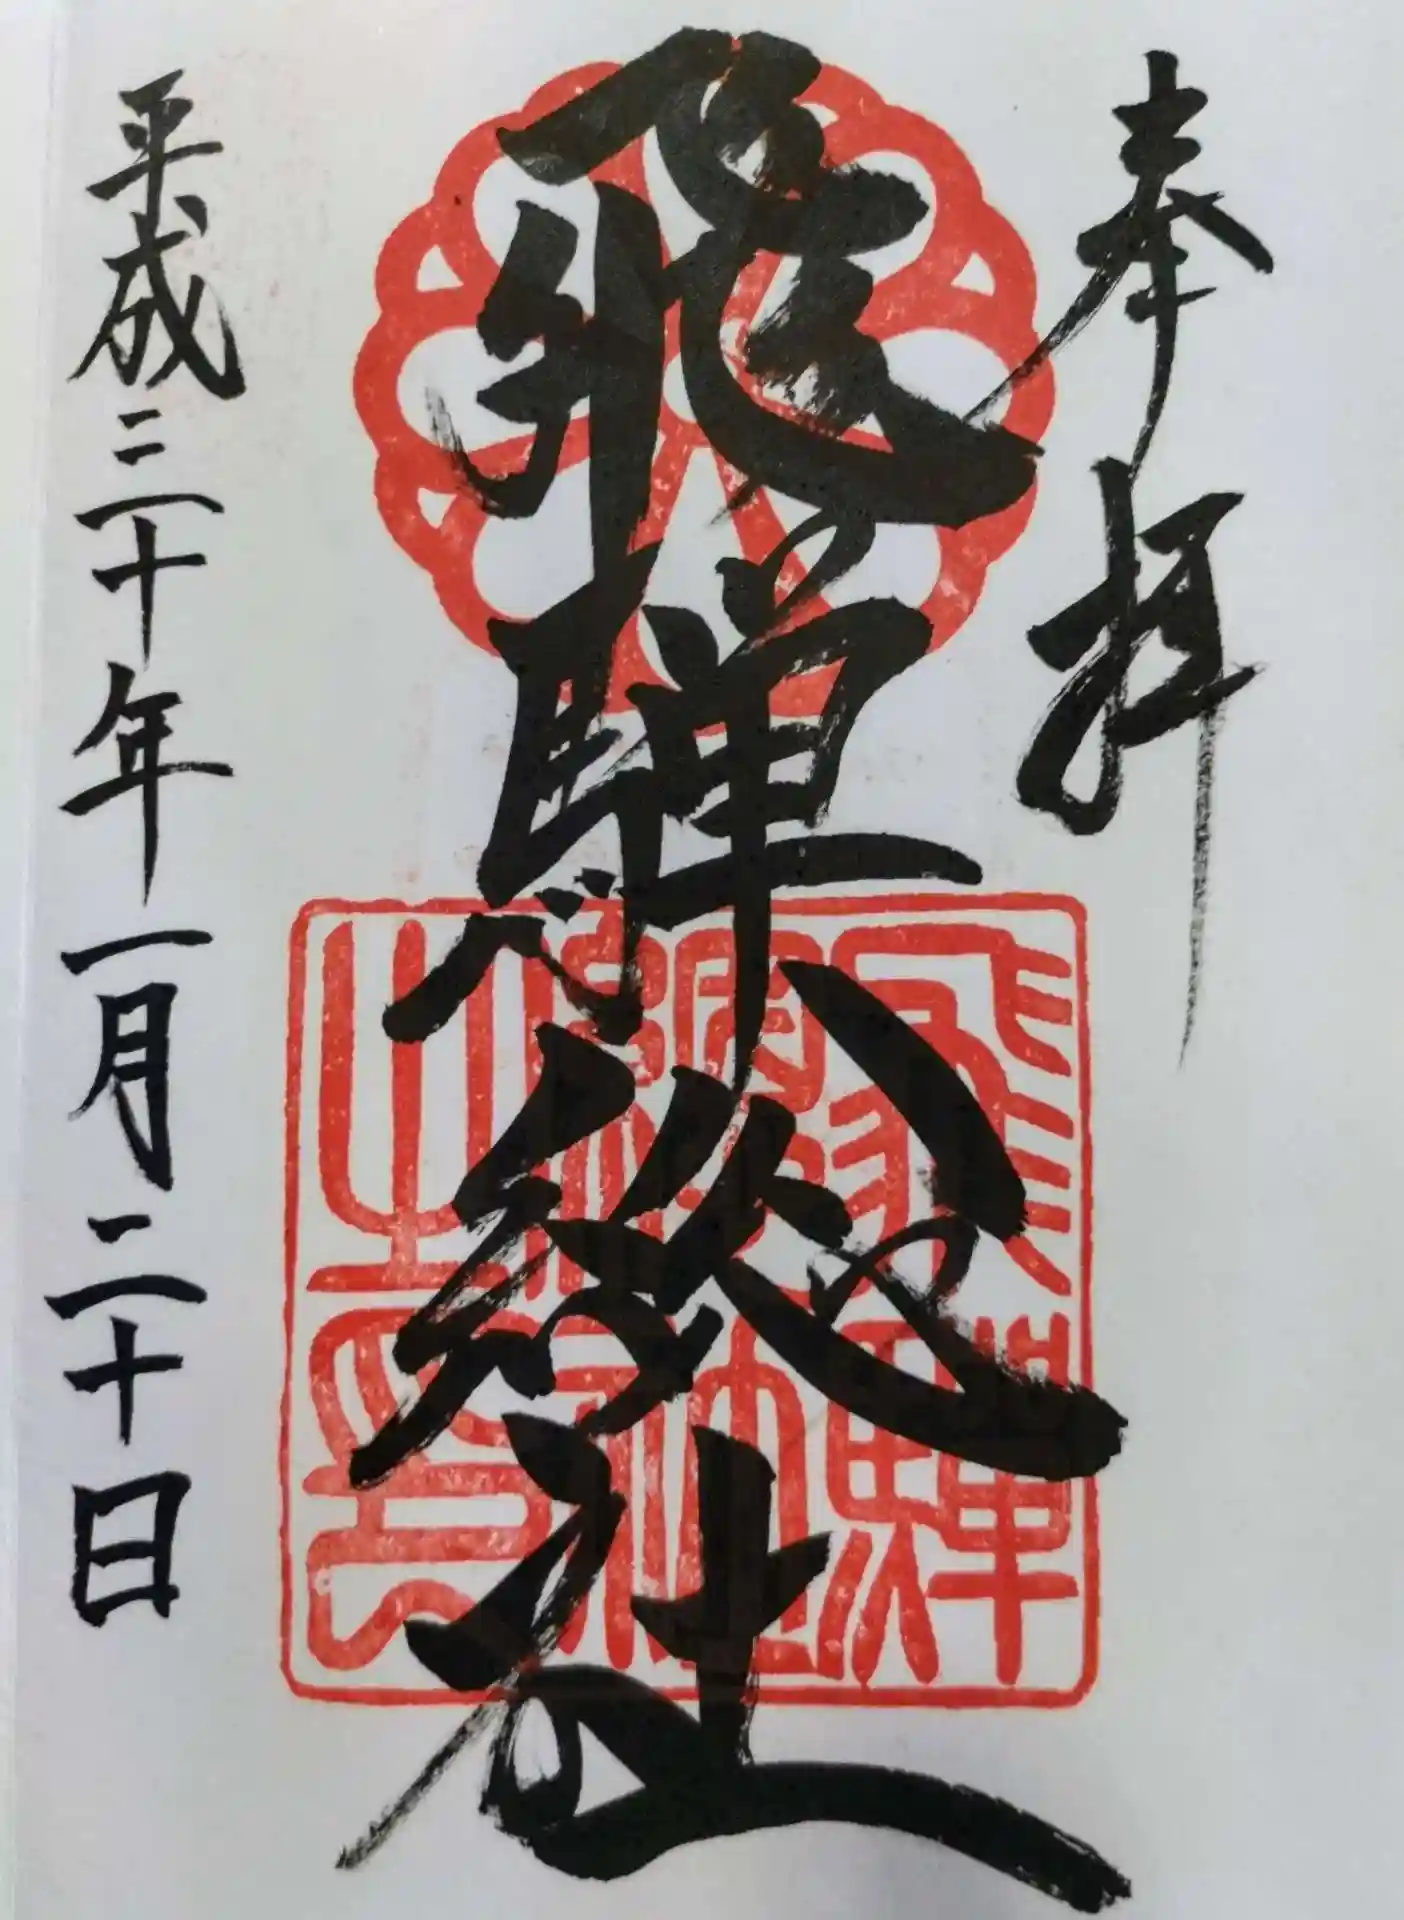 奉拝
飛騨総社
平成三十年一月二十日
飛騨國総社之印